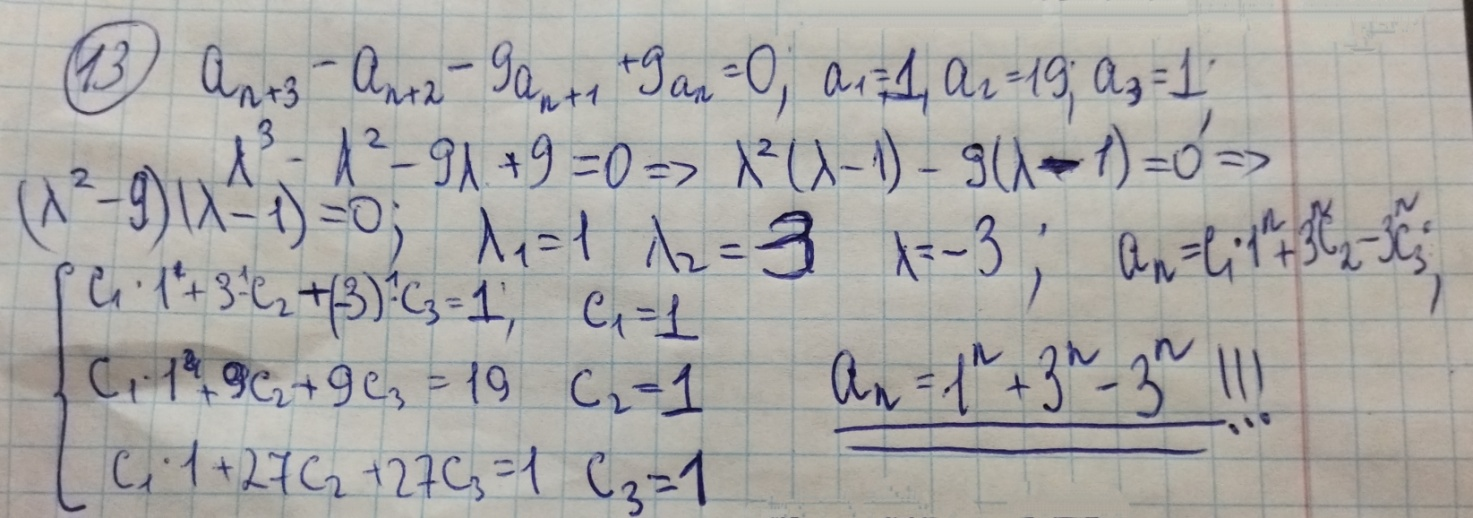 13 aₙ₊₃ - aₙ₊₂ - 9aₙ₊₁ + 9aₙ = 0; a₁ = 1, a₂ = 19; a₃ = 1;
λ³ - λ² - 9λ + 9 = 0 => λ²(λ - 1) - 9(λ - 1) = 0 =>
(λ² - 9)(λ - 1) = 0; λ₁ = 1 λ₂ = 3 λ = -3; aₙ = C₁·1ⁿ + 3ⁿC₂ - 3ⁿC₃;
{ C₁·1¹ + 3¹·C₂ + (-3)¹·C₃ = 1; C₁ = 1
C₁·1² + 9C₂ + 9C₃ = 19 C₂ = 1
aₙ = 1ⁿ + 3ⁿ - 3ⁿ !!!
C₁·1 + 27C₂ + 27C₃ = 1 C₃ = 1